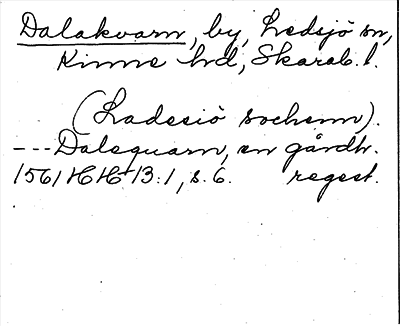 Dalakvarn, by, Ledsjö sn,
Kinne hd, Skarab. l.
(Ladesiö sochenn).
---Dalequarn, en gårdh.
1561 HH 13:1, s. 6. regest.